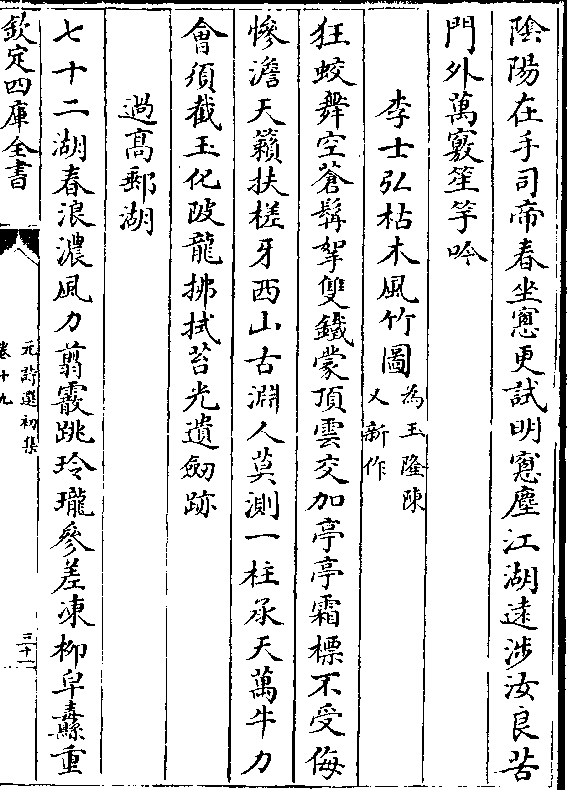 陰陽在手司帝春坐窻更試明窻塵江湖遠涉汝良苦
門外萬竅笙竽吟
李士弘枯木風竹圖為玉隆陳又新作
狂蛟舞空蒼髯拏雙鐵蒙頂雲交加亭亭霜標不受侮
慘澹天籟扶槎牙西山古淵人莫測一柱承天萬牛力
會須截玉化陂龍拂拭苔光遺劒跡
過髙郵湖
七十二湖春浪濃風力翦霞跳玲瓏參差凍柳帛纛重
欽定四庫全書
元詩選初集
卷十九
三十一